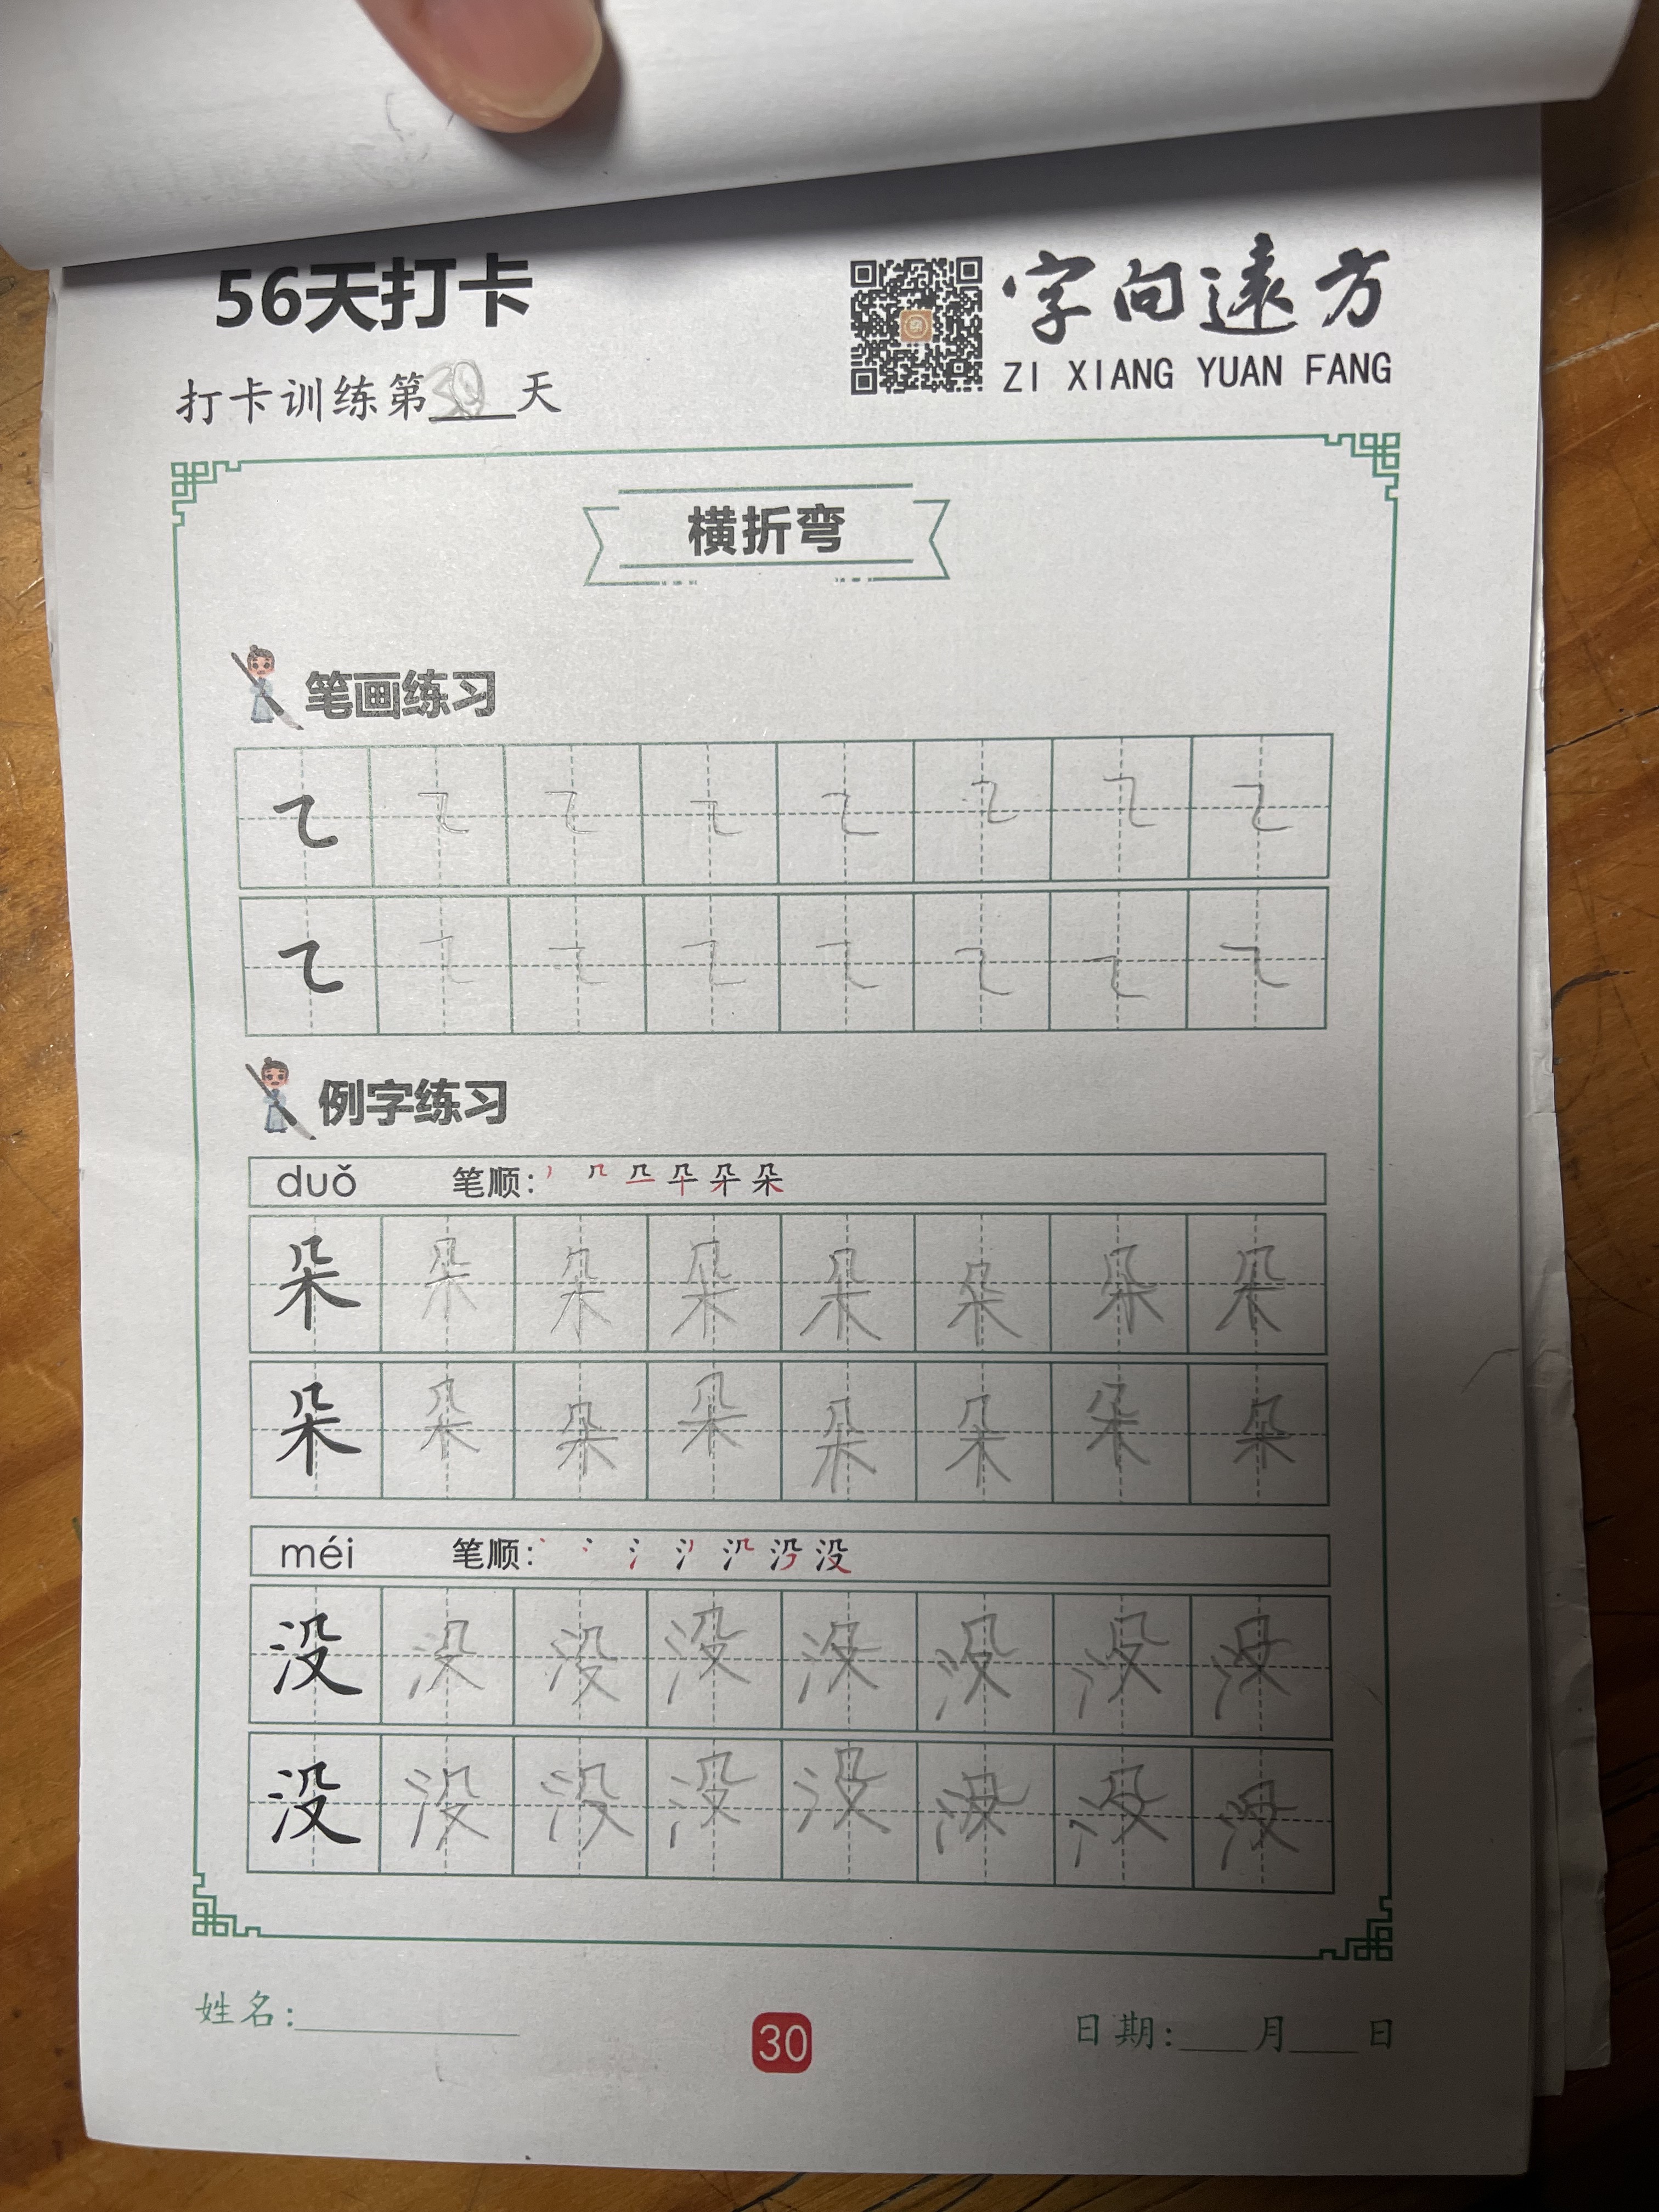 56天打卡
字向遠方
ZI XIANG YUAN FANG
打卡训练第30天
横折弯
笔画练习
例字练习
duǒ 笔顺:
朵 朵 朵 朵 朵 朵 朵 朵
朵 朵 朵 朵 朵 朵 朵 朵
méi 笔顺: 没
没 没 没 没 没 没 没 没
没 没 没 没 没 没 没 没
姓名:
30
日期: 月 日